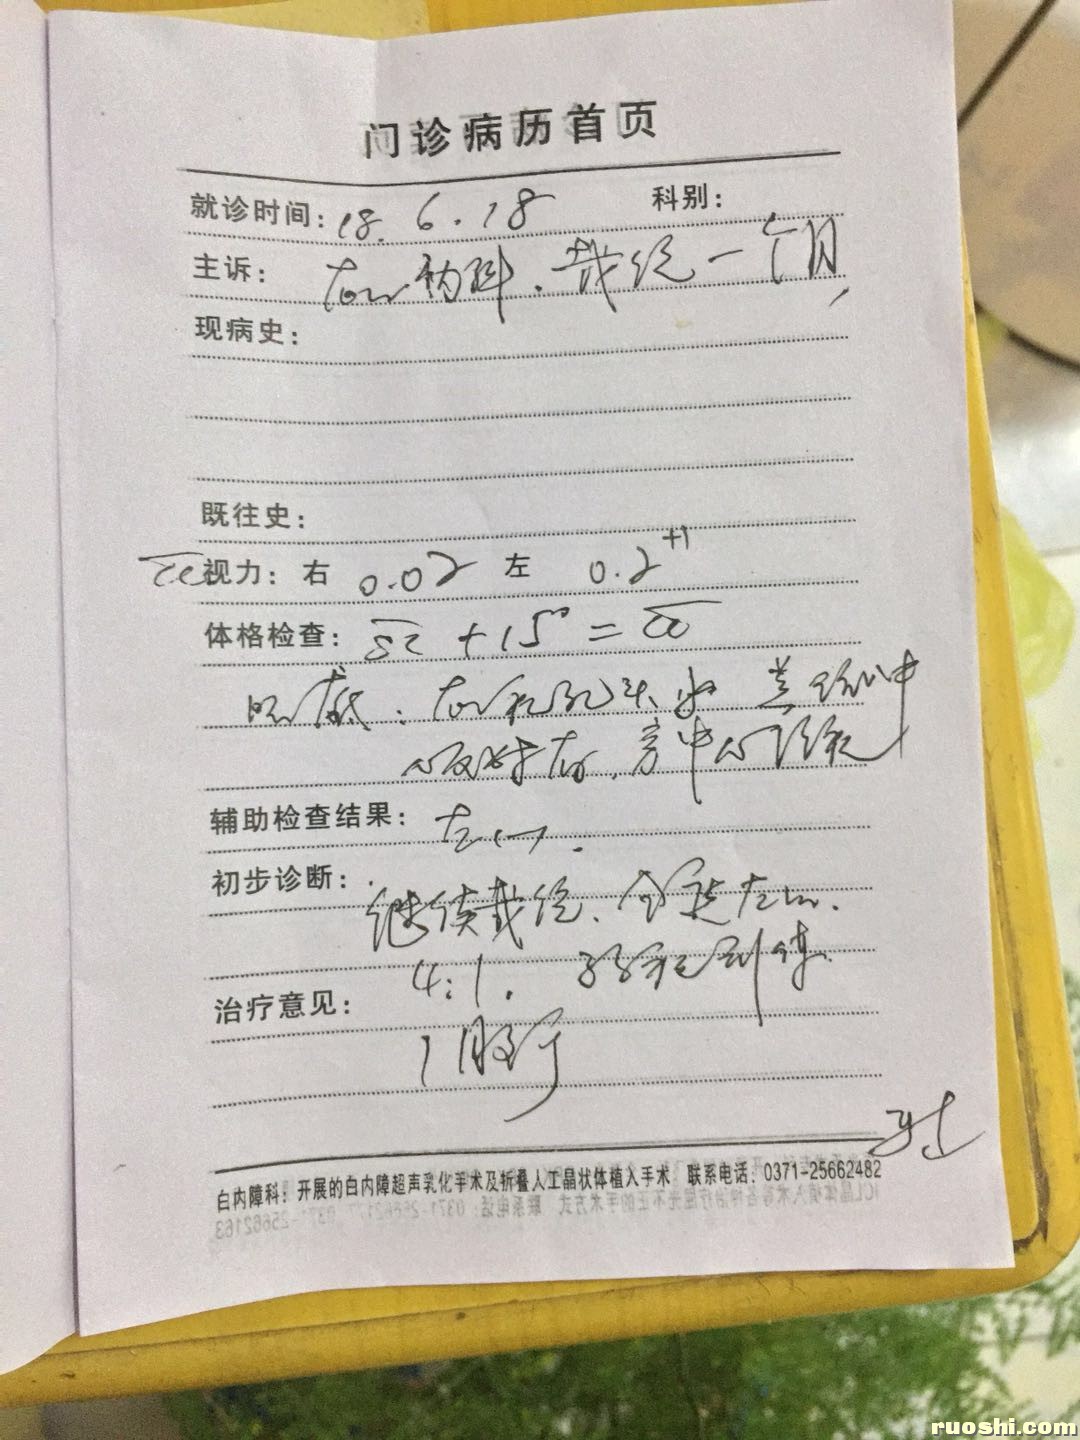 门诊病历首页
就诊时间: 18. 6. 18 科别:
主诉: 右眼 内斜. 戴镜一个月,
现病史:
既往史:
cc 视力: 右 0.02 左 0.2+1
体格检查: sc +15° = cc
眼底: 右眼视乳头 黄斑中
心反射存, 旁中心注视
辅助检查结果: 左(-).
初步诊断:
继续戴镜, 遮左眼.
4:1. 弱视训练
治疗意见:
1月
白内障科: 开展的白内障超声乳化手术及折叠人工晶状体植入手术 联系电话: 0371-25662482
ruoshi.com